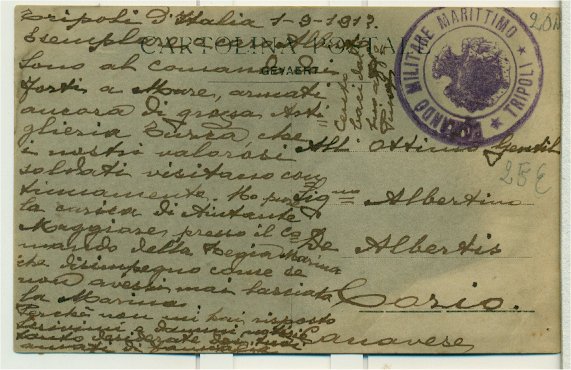 Tripoli d'Italia 1-9-191?.
Esemplare Alberti
CARTOLINA POSTALE
GEVAERT
Sono al comando di
forti a Mare, armati
ancora di grossa Arti
glieria Turca che
i nostri valorosi
soldati visitano con
tinuamente. Ho pure
la carica di Aiutante
Maggiore presso il Co
mando della Regia Marina
che disimpegno come se
non avessi mai lasciato
la Marina.
Perchè non mi hai risposto
Scrivimi e dammi notizie
tanto desiderate dei tuoi
COMANDO MILITARE MARITTIMO
★ TRIPOLI ★
All' Ottimo Gentil
Sig.no Albertino
De Albertis
Corio.
Canavese
25 €